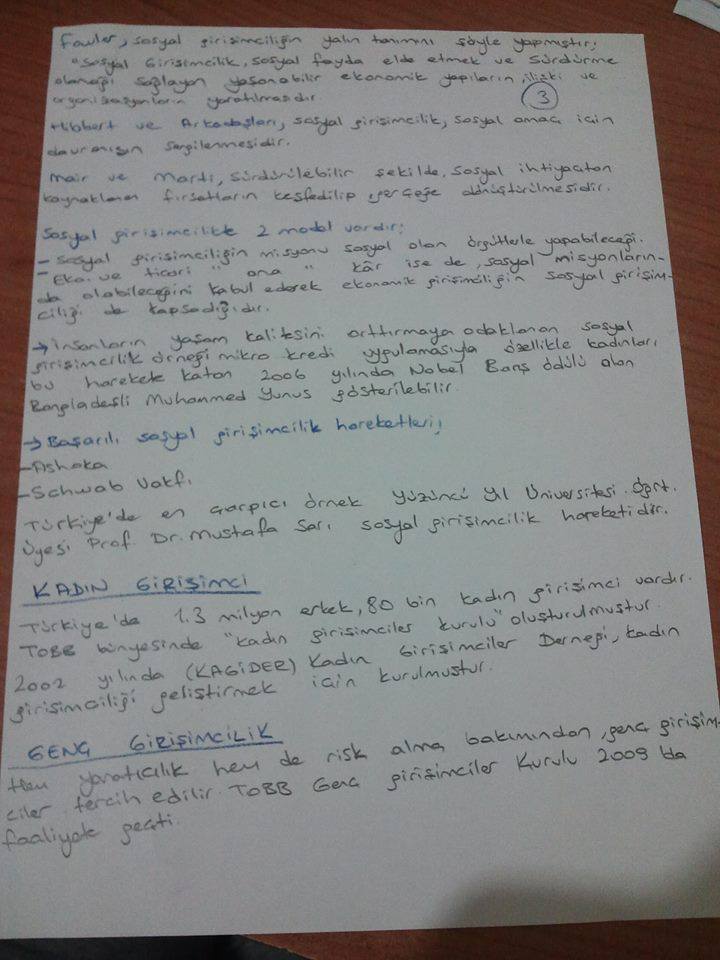 Fowler, sosyal girişimciliğin yalın tanımını şöyle yapmıştır;
"Sosyal Girişimcilik, sosyal fayda elde etmek ve sürdürme
olanağı sağlayan yaşanabilir ekonomik yapıların, ilişki ve
organizasyonların yaratılmasıdır.
3
Hibbert ve Arkadaşları, sosyal girişimcilik, sosyal amaç için
davranışın sergilenmesidir.
Mair ve Marti, sürdürülebilir şekilde, sosyal ihtiyaçtan
kaynaklanan fırsatların keşfedilip, gerçeğe dönüştürülmesidir.
Sosyal girişimcilikte 2 model vardır;
- Sosyal girişimciliğin misyonu sosyal olan örgütlerle yapabileceği.
- Eko. ve ticari " ana " kâr ise de, sosyal misyonların-
da olabileceğini kabul ederek ekonomik girişimciliğin sosyal girişim-
ciliği de kapsadığıdır.
→ İnsanların yaşam kalitesini arttırmaya odaklanan sosyal
girişimcilik örneği mikro kredi uygulamasıyla özellikle kadınları
bu harekete katan 2006 yılında Nobel Barış ödülü alan
Bangladeşli Muhammed Yunus gösterilebilir.
→ Başarılı sosyal girişimcilik hareketleri;
- Ashoka
- Schwab Vakfı
Türkiye'de en çarpıcı örnek Yüzüncü Yıl Üniversitesi Öğrt.
Üyesi Prof. Dr. Mustafa Sarı sosyal girişimcilik hareketidir.
KADIN GİRİŞİMCİ
Türkiye'de 1.3 milyon erkek, 80 bin kadın girişimci vardır.
TOBB bünyesinde "kadın girişimciler kurulu" oluşturulmuştur.
2002 yılında (KAGİDER) Kadın Girişimciler Derneği, kadın
girişimciliği geliştirmek için kurulmuştur.
GENÇ GİRİŞİMCİLİK
Hem yaratıcılık hem de risk alma bakımından, genç girişim-
ciler tercih edilir. TOBB Genç girişimciler Kurulu 2009'da
faaliyete geçti.